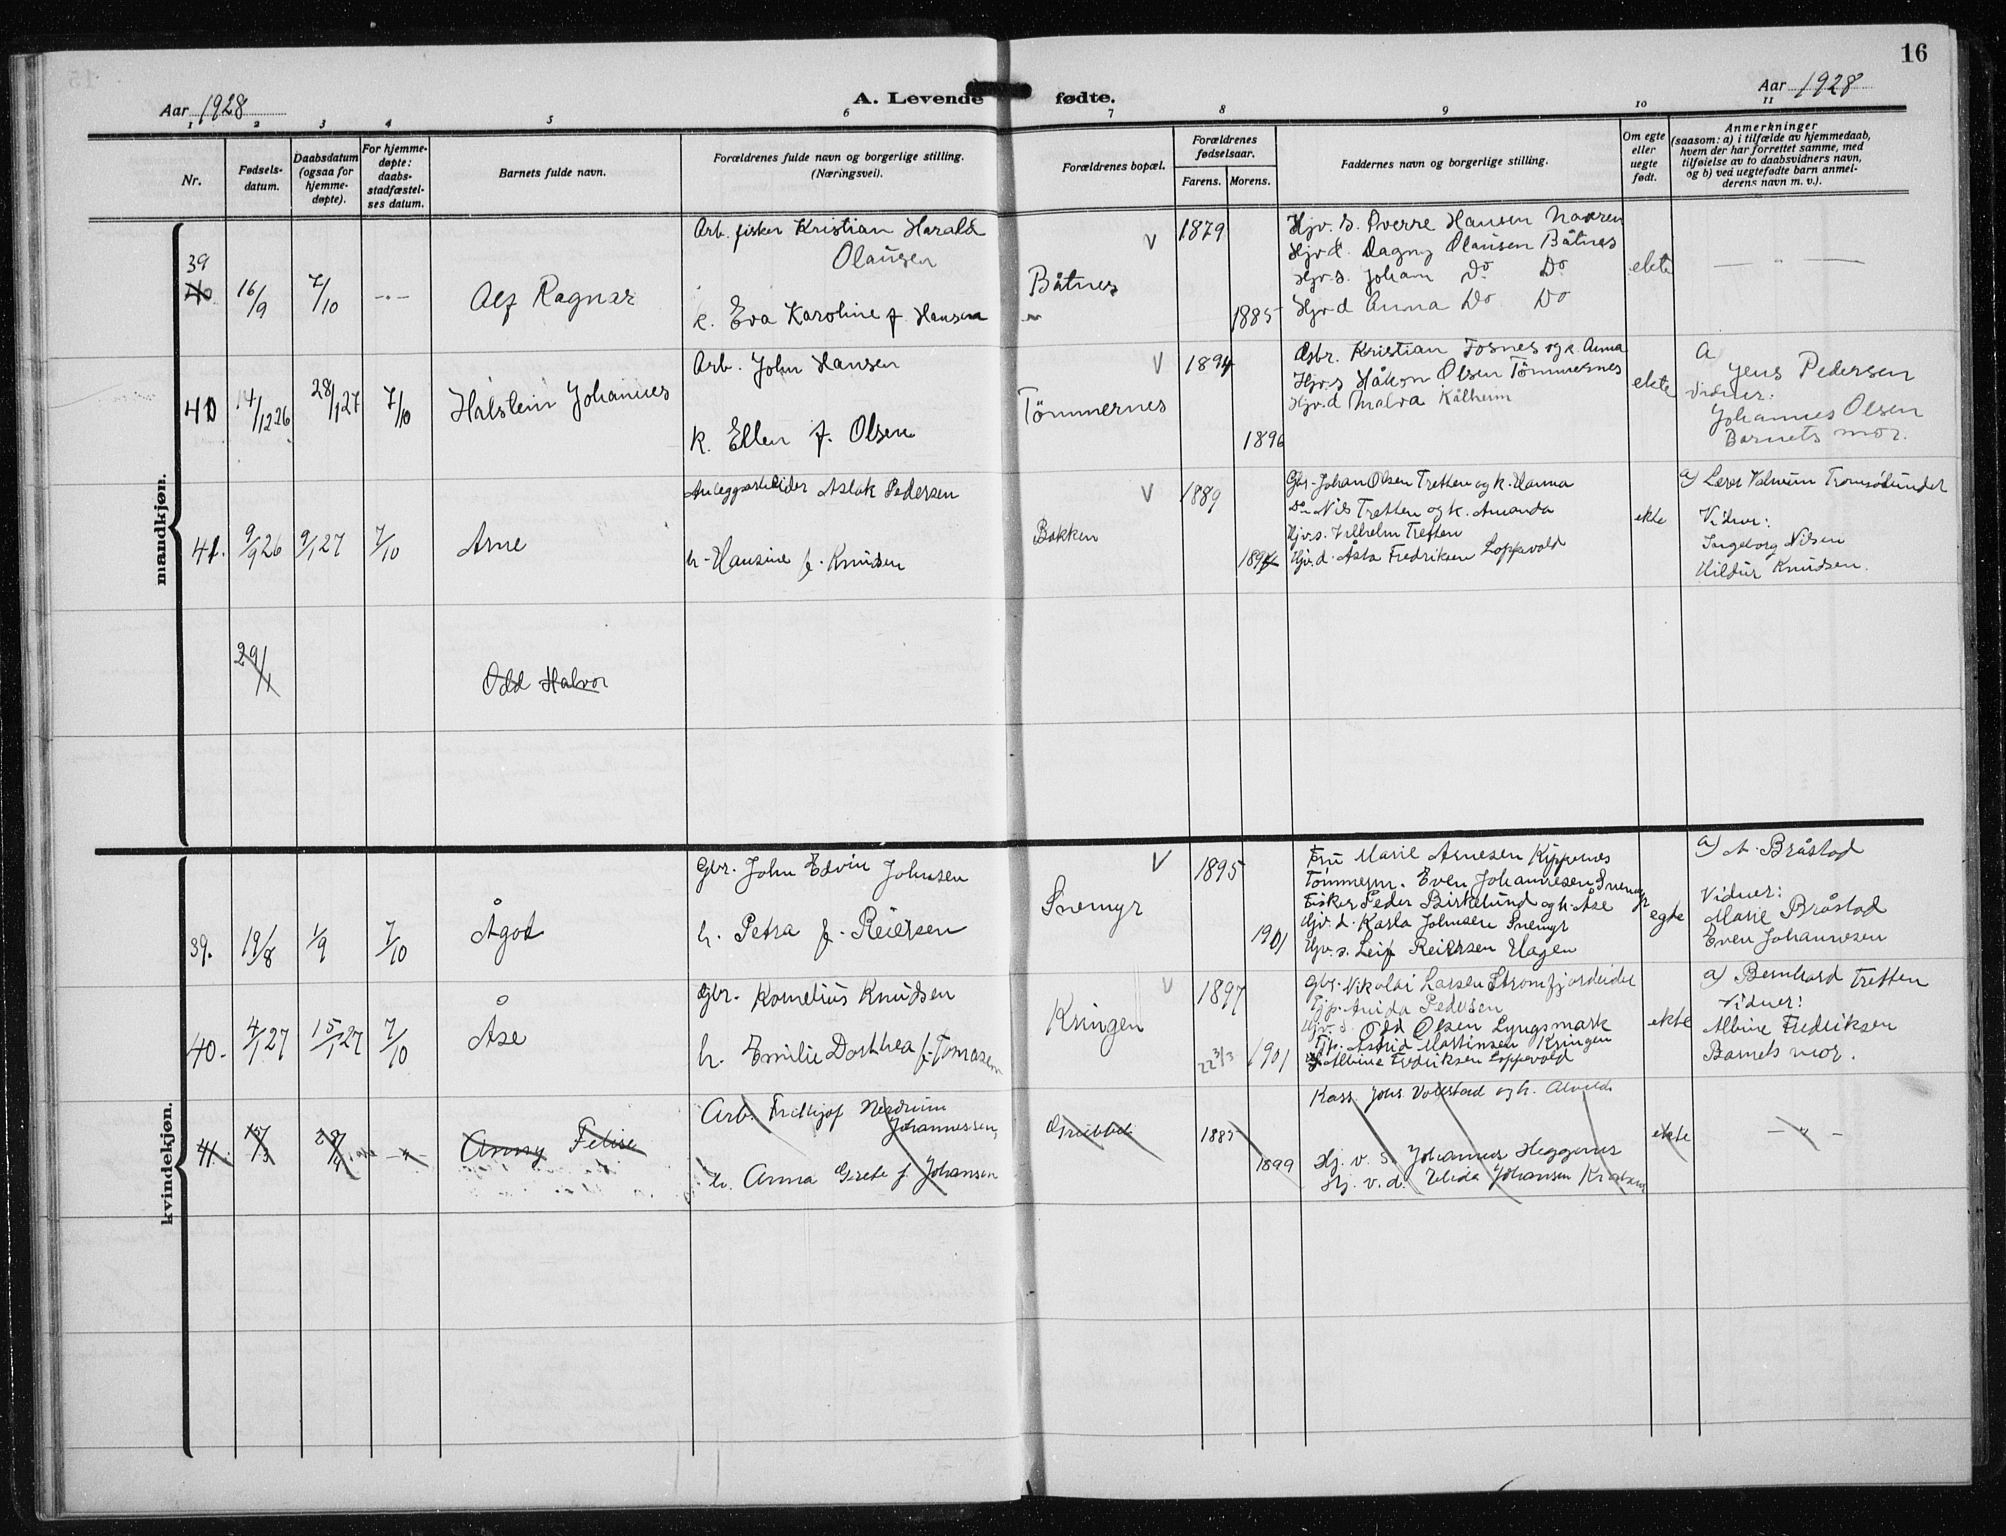 16
Aar 1928
A. Levende fødte.
Aar 1928
1 2 3 4 5 6 7 8 9 10 11
Nr.
Fødsels-
datum.
Daabsdatum
(ogsaa for
hjemme-
døpte).
For hjemme-
døpte:
daabs-
stadfæstel-
ses datum.
Barnets fulde navn.
Forældrenes fulde navn og borgerlige stilling.
(Næringsvei).
Forældrenes bopæl.
Forældrenes
fødselsaar.
Farens. Morens.
Faddernes navn og borgerlige stilling.
Om egte
eller
uegte
født.
Anmerkninger
(saasom: a) i tilfælde av hjemmedaab,
hvem der har forrettet samme, med
tilføielse av to daabsvidners navn,
og b) ved uegtefødte barn anmel-
derens navn m. v.).
mandkjøn.
39
40
16/9
7/10
-"-
Alf Ragnar
Arb. fisker Kristian Harald
Olausen
k. Eva Karoline f. Hansen
Båtnes
"
V
1879
1885
Hjv. s. Sverre Hansen
Hjvd. Dagny Olausen Båtnes
Hjv.s. Johan Do Do
Hjvd Anna Do Do
ekte
— " —
40
14/12 26
28/1 27
7/10
Halstein Johannes
Arb. John Hansen
k. Ellen f. Olsen
Tømmernes
V
1894
1896
Gbr. Kristian Fosnes og k. Anna
Hjv.s Håkon Olsen Tømmernes
Hjv.d Malva Kålheim
ekte
a
Jens Pedersen
Vidner:
Johannes Olsen
Barnets mor.
41.
9/9 26
9/1 27
7/10
Arne
Anleggsarbeider Aslak Pedersen
h. Hansine f. Knudsen
Bakken
V
1889
1894
Gbr. Johan Olsen Tretten og k. Hanna
Do Nils Tretten og k. Amanda
Hjv.s. Vilhelm Tretten
Hjv.d. Åsta Fredriksen Loppevold
ekte
a) Tromsøsundet
Vidner:
Ingeborg Nilsen
Hildur Knudsen.
29/1
Odd Halvor
kvindekjøn.
39.
19/8
1/9
7/10
Ågot
Gbr. John Edvin Johnsen
h. Petra f. Reiersen
Snemyr
V
1895
1901
Fru Marie Arnesen Kippernes
Tømmerm. Even Johannesen Snemyr
Fisker Peder Birkelund og h. Åse
Hjv. d. Karla Johnsen Snemyr
Hjv. s. Leif Reiersen Hagen
egte
a) A. Bråstad
Vidner:
Marie Bråstad
Even Johannesen
40.
4/1 27
15/1 27
7/10
Åse
Gbr. Kornelius Knudsen
h. Emilie Dorthea f. Tomasen
Kringen
V
1897
22 3/3
1901
Gbr. Nikolai Larsen Stromfjordeidet
Tjp. Pedersen
Hjv. s. Odd Olsen Lyngsmark
Tjp. Astrid Martinsen Kringen
Albine Fredriksen Loppevold
ekte
a) Bernhard Tretten
Vidner:
Albine Fredriksen
Barnets mor.
41.
-"-
Anny Felise
Arb. Fridtjof Nerdrum
Johannessen,
h. Anna Grete f. Johansen
1885
1899
Kass. Johs Volstad og h. Alvilde
Hj. v. s. Johannes Heggenes
Hj. v. d. Elida Johansen
ekte
- " -